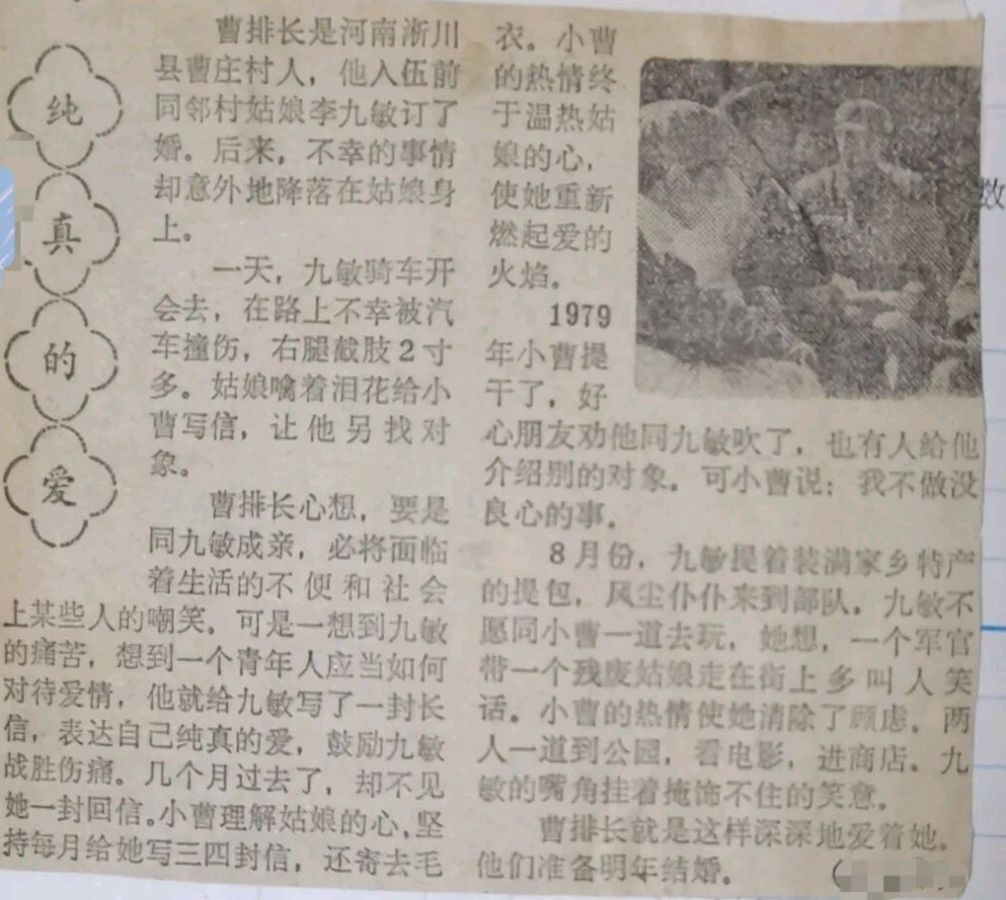 纯真的爱
曹排长是河南淅川
县曹庄村人，他入伍前
同邻村姑娘李九敏订了
婚。后来，不幸的事情
却意外地降落在姑娘身
上。
一天，九敏骑车开
会去，在路上不幸被汽
车撞伤，右腿截肢2寸
多。姑娘噙着泪花给小
曹写信，让他另找对
象。
曹排长心想，要是
同九敏成亲，必将面临
着生活的不便和社会
上某些人的嘲笑。可是一想到九敏
的痛苦，想到一个青年人应当如何
对待爱情，他就给九敏写了一封长
信，表达自己纯真的爱，鼓励九敏
战胜伤痛。几个月过去了，却不见
她一封回信。小曹理解姑娘的心，坚
持每月给她写三四封信，还寄去毛
衣。小曹
的热情终
于温热姑
娘的心，
使她重新
燃起爱的
火焰。
1979
年小曹提
干了，好
心朋友劝他同九敏吹了，也有人给他
介绍别的对象。可小曹说：我不做没
良心的事。
8月份，九敏提着装满家乡特产
的提包，风尘仆仆来到部队。九敏不
愿同小曹一道去玩，她想，一个军官
带一个残废姑娘走在街上多叫人笑
话。小曹的热情使她清除了顾虑。两
人一道到公园，看电影，进商店。九
敏的嘴角挂着掩饰不住的笑意。
曹排长就是这样深深地爱着她。
他们准备明年结婚。
数